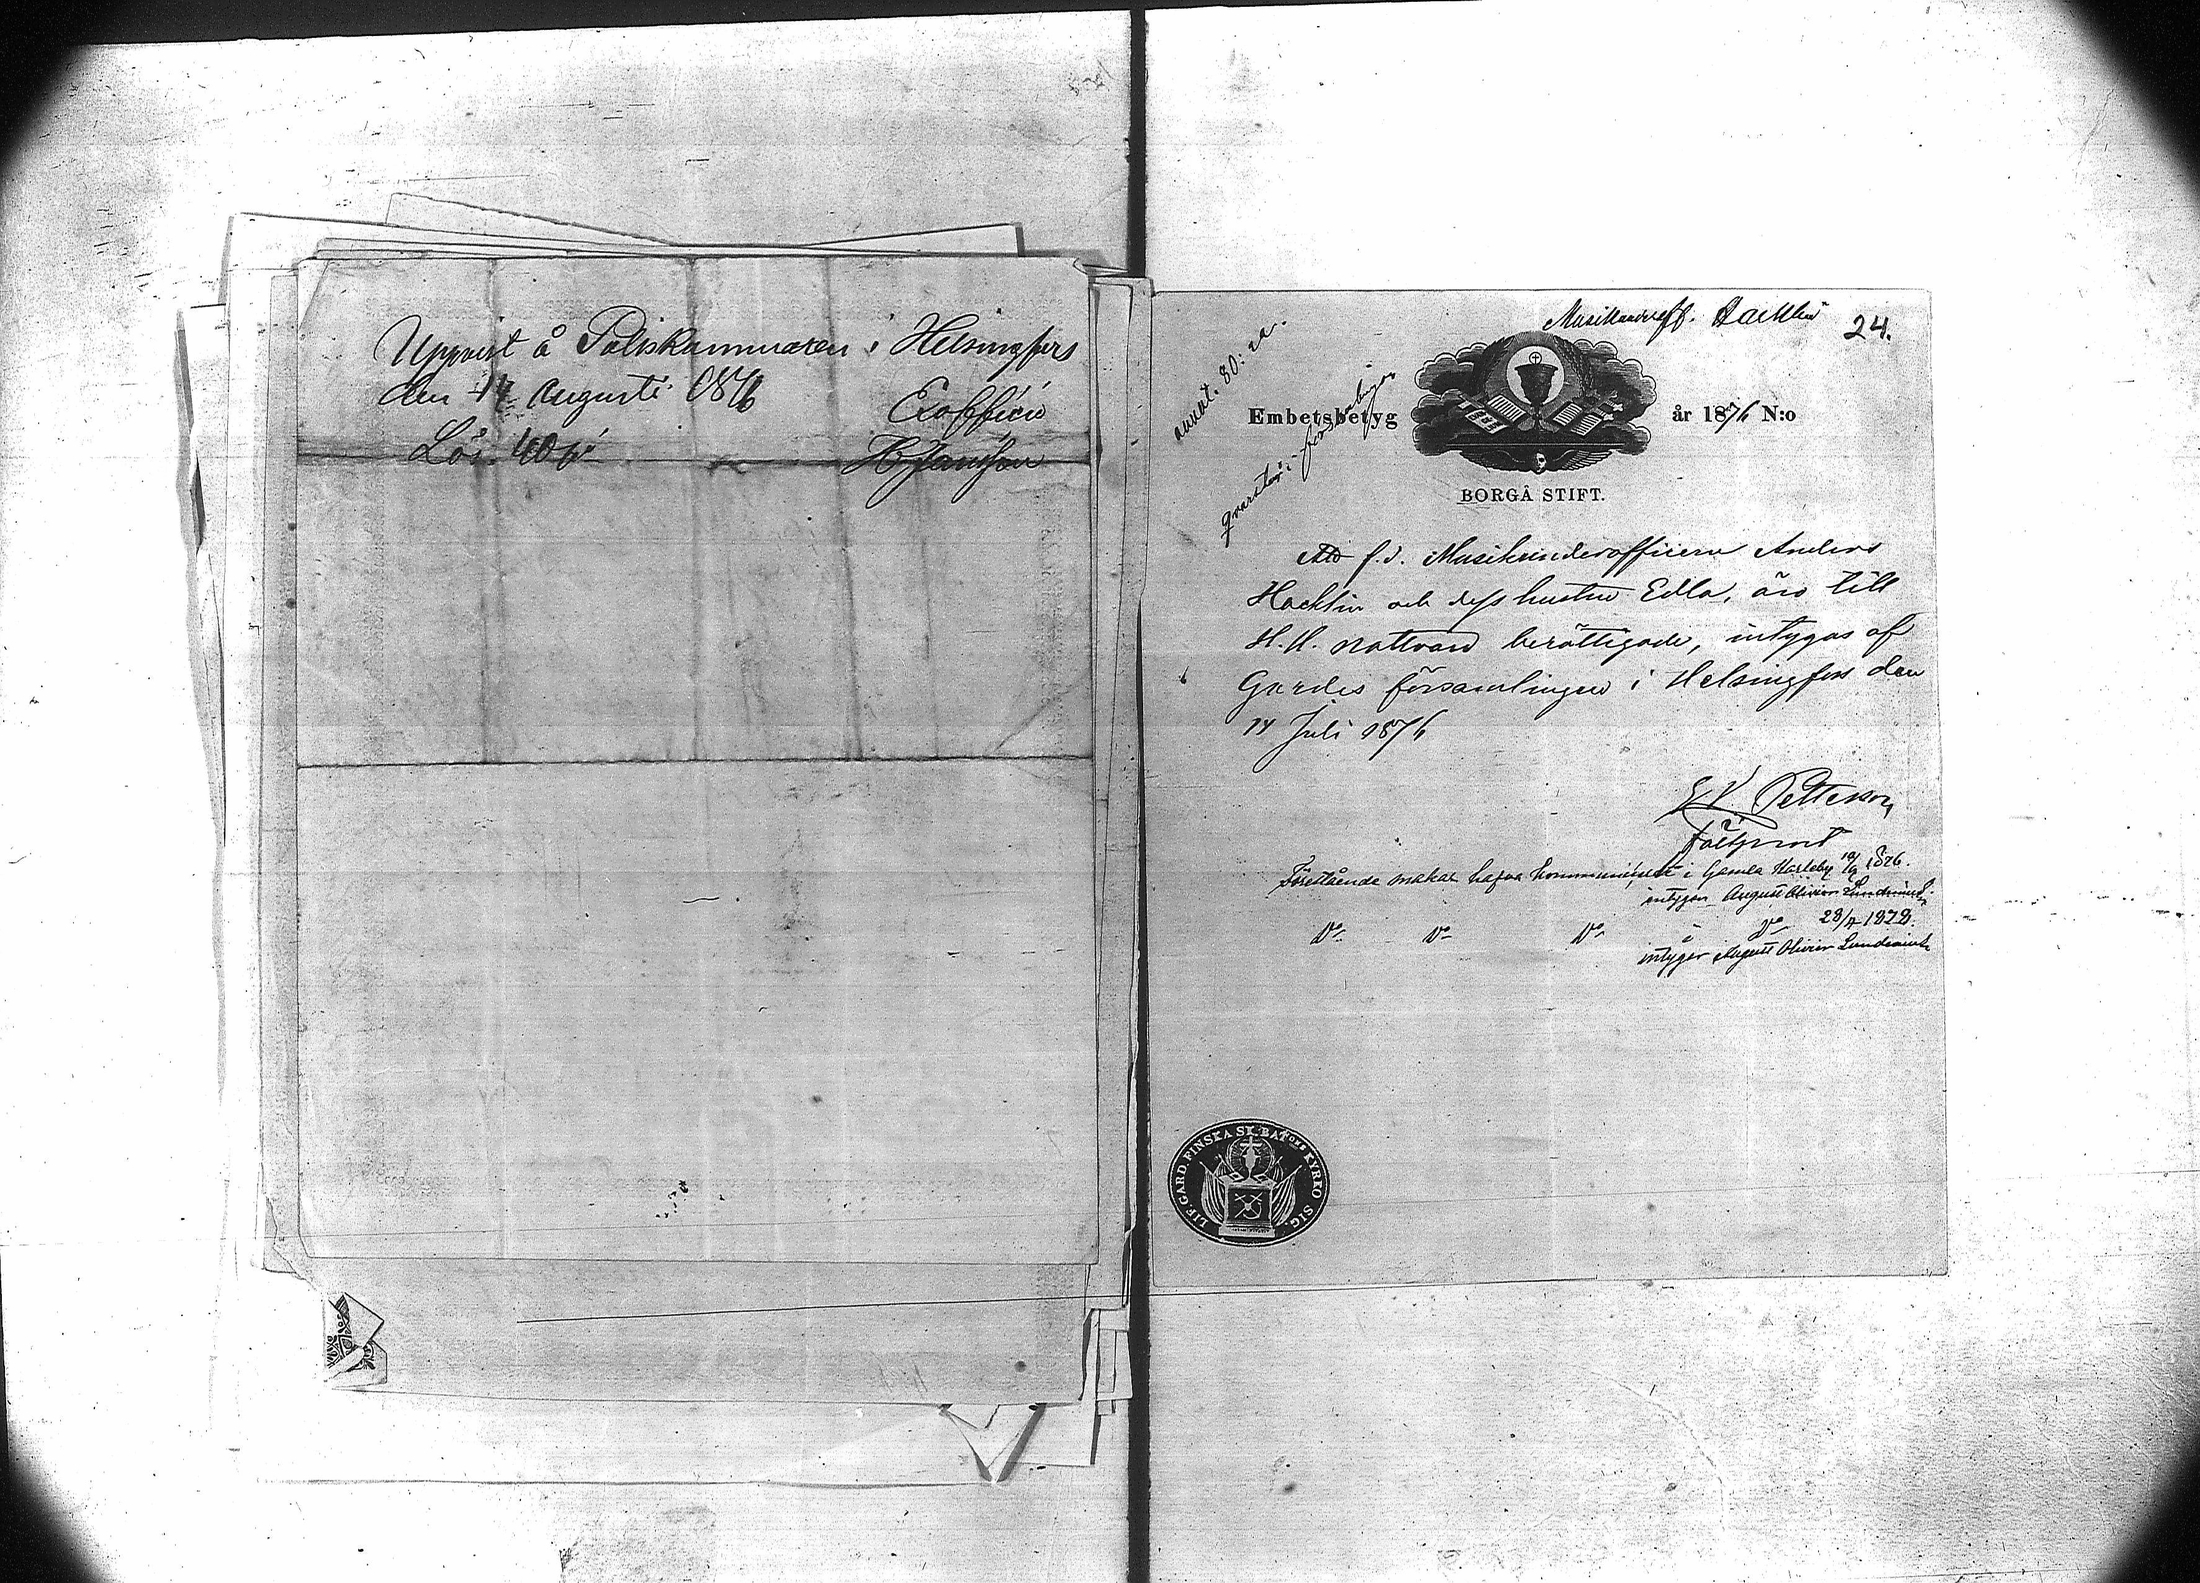 Uppvist å Poliskammaren i Helsingfors
den 14 Augusti 1876
Ex officio
Lös. 40 p:i
24.
Embetsbetyg
år 1876 N:o
BORGÅ STIFT.
Att f.d. Musikunderofficern Anders
Hacklin och dess hustru Edla, äro till
H.H. nattvard berättigade, intygas af
Gardes församlingen i Helsingfors den
14 Juli 1876
Petterson
Fältprost
Förestående makar hafva kommunicerat i Gamla Karleby 10/9 1876.
intygar August Olivier Lundmark.
Do Do Do i Do 28/4 1878.
intygar August Olivier Lundmark
LIF. GARD. FINSKA SK. BAT:ONS KYRKO SIG.